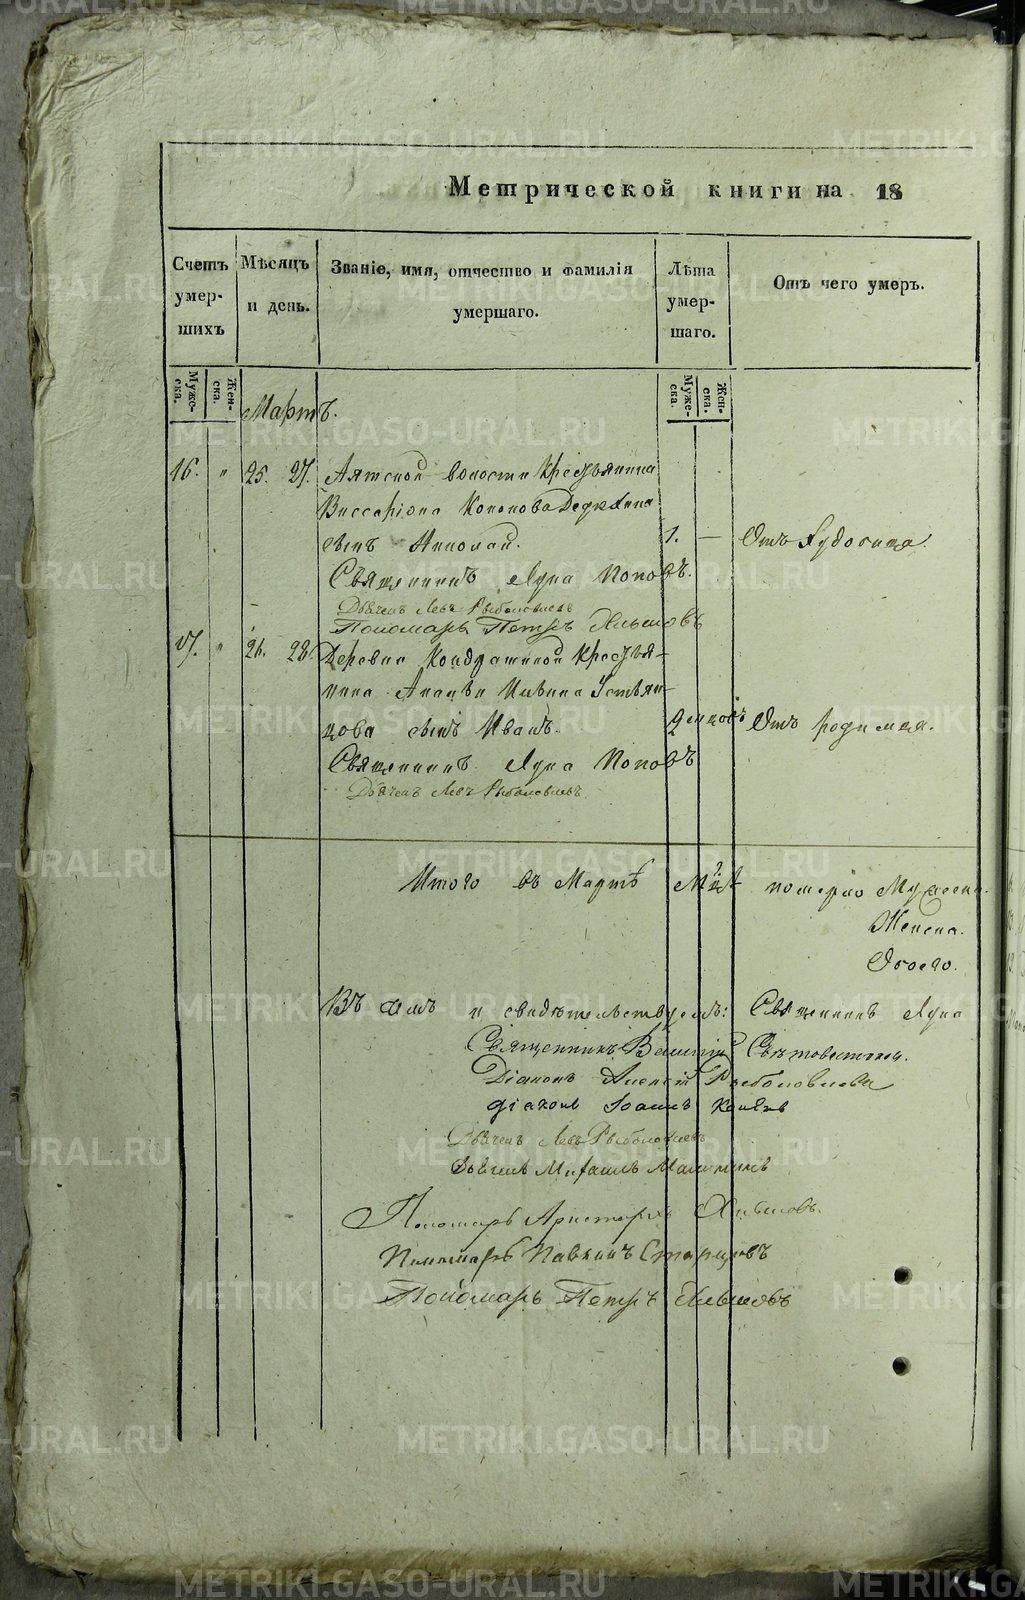 Метрической книги на 18
Счетъ умер- шихъ
Мѣсяцъ и день.
Званіе, имя, отчество и фамилія умершаго.
Лѣта умер- шаго.
Отъ чего умеръ.
Муже- ска.
Жен- ска.
Муже- ска.
Жен- ска.
Мартъ.
16. " 25. 27. Аятской волости Крестьянина
Виссаріона Кононова Дедюхина
сынъ Николай. 1. — Отъ
Священникъ Лука Поповъ.
Дьячекъ Левъ Рыболовлевъ
Пономарь Петръ Хлыновъ
17. " 26. 28. Деревни Кондратиной Крестья-
нина Ананьи Ильина Устьян-
цова сынъ Иванъ. Отъ родимца.
Священникъ Лука Поповъ
Дьячекъ Левъ Рыболовлевъ
Итого въ Мартѣ М-цѣ померло Мужеска.
Женска.
Обоего.
Въ чемъ и свидѣтельствуемъ: Священникъ Лука
Священникъ
Діаконъ Алексій Рыболовлевъ
Діаконъ Іоаннъ
Дьячекъ Левъ Рыболовлевъ
Дьячекъ Михаилъ
Пономарь Аристархъ Хлыновъ.
Пономарь Павлинъ Старцовъ
Пономарь Петръ Хлыновъ
METRIKI.GASO-URAL.RU